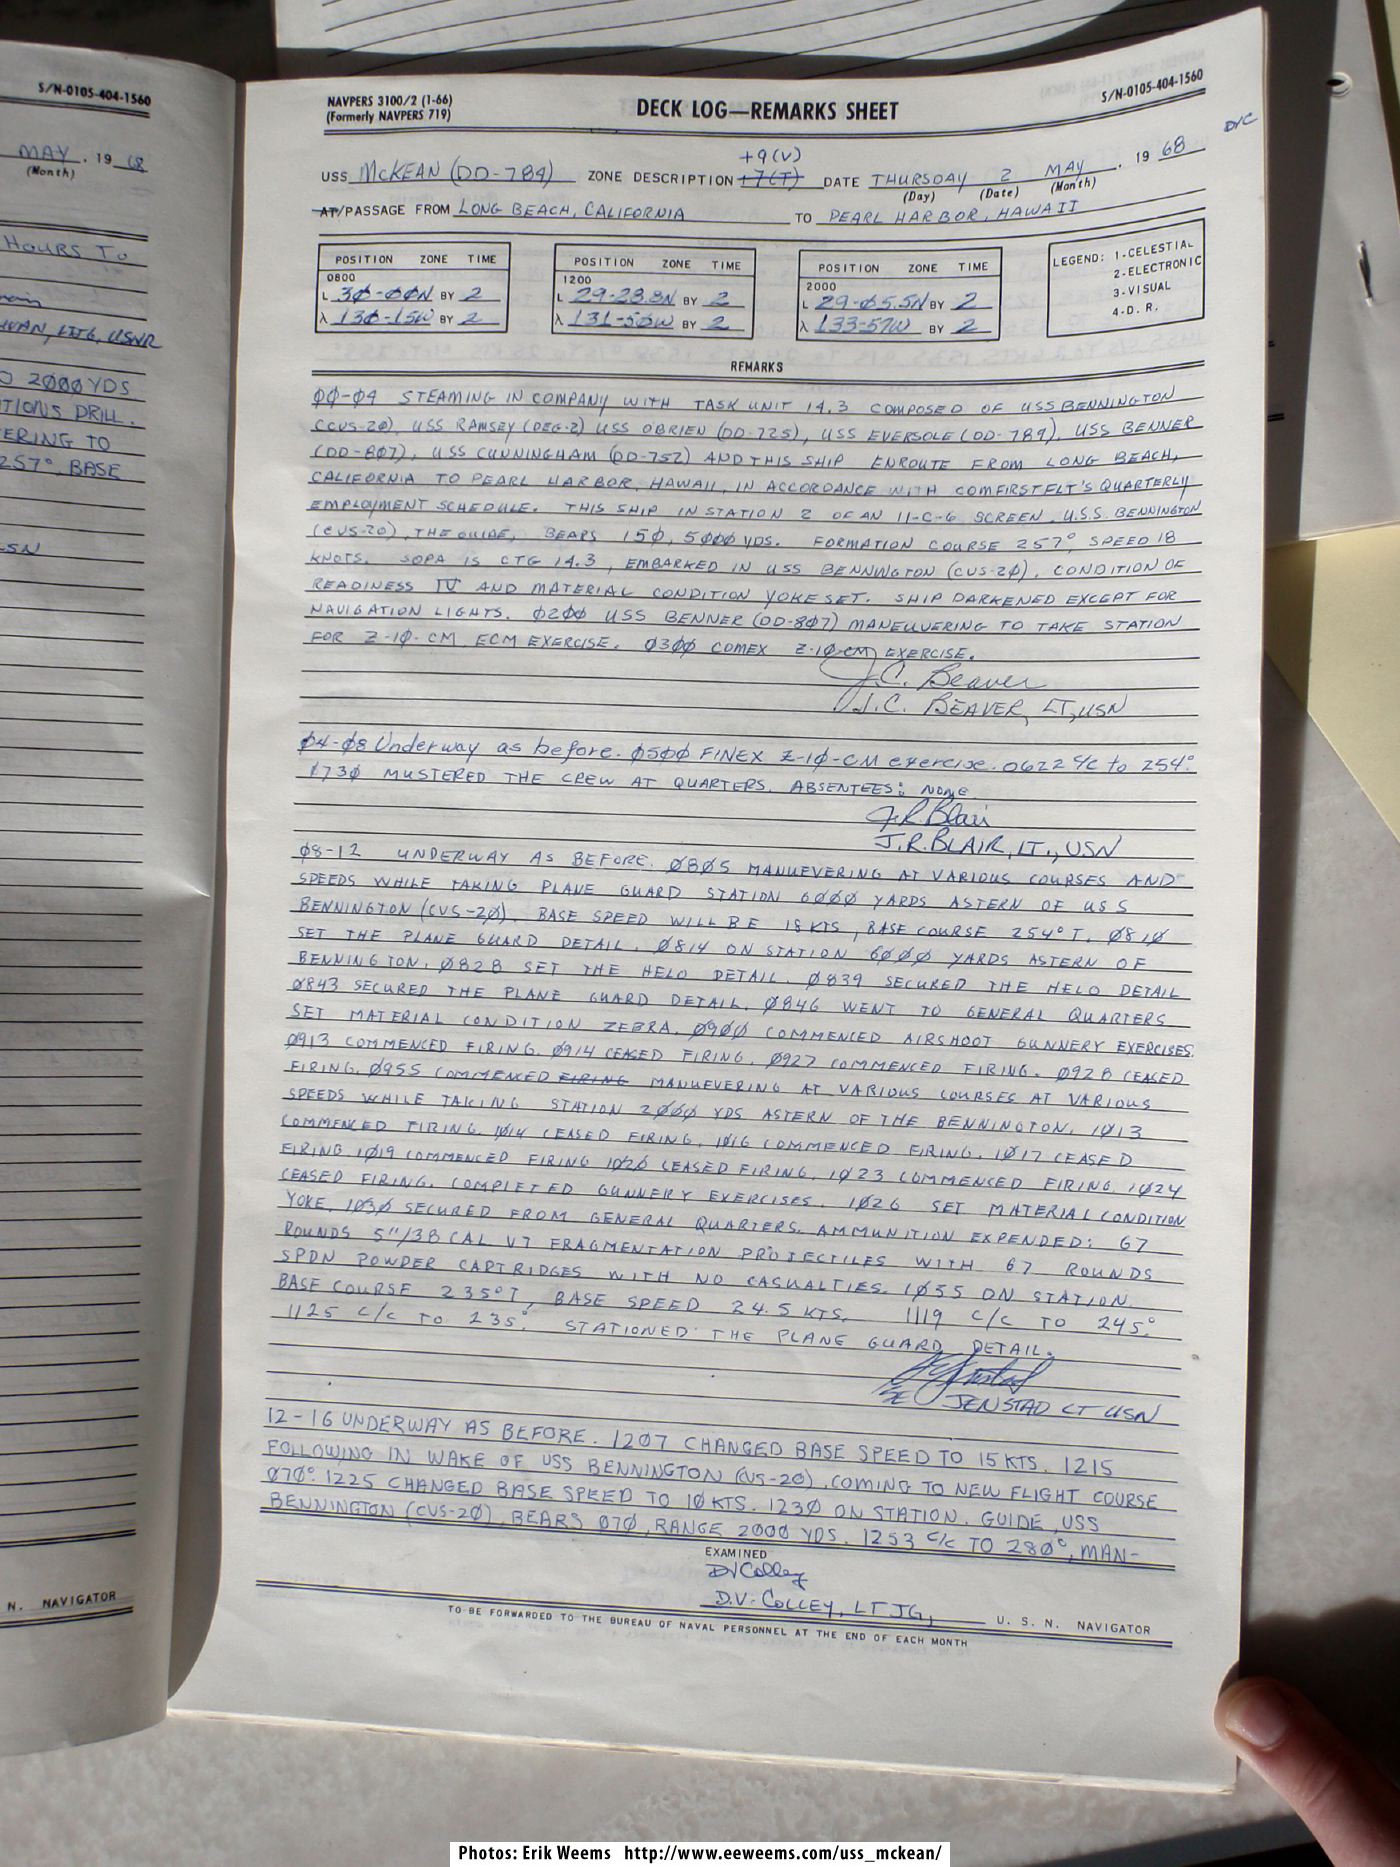 S/N-0105-404-1560
MAY, 19 68
(Month)
HOURS TO
LTJG, USNR
2000 YDS
TIONS DRILL.
ERING TO
257° BASE
SN
N. NAVIGATOR
NAVPERS 3100/2 (1-66)
(Formerly NAVPERS 719)
DECK LOG—REMARKS SHEET
S/N-0105-404-1560
DVC
+9(V)
USS McKEAN (DD-784) ZONE DESCRIPTION +7(T) DATE THURSDAY 2 MAY, 19 68
(Day) (Date) (Month)
AT/PASSAGE FROM LONG BEACH, CALIFORNIA TO PEARL HARBOR, HAWAII
POSITION ZONE TIME
0800
L 30-00N BY 2
λ 130-15W BY 2
POSITION ZONE TIME
1200
L 29-28.8N BY 2
λ 131-50W BY 2
POSITION ZONE TIME
2000
L 29-05.5N BY 2
λ 133-57W BY 2
LEGEND: 1-CELESTIAL
2-ELECTRONIC
3-VISUAL
4-D. R.
REMARKS
00-04 STEAMING IN COMPANY WITH TASK UNIT 14.3 COMPOSED OF USS BENNINGTON
(CVS-20), USS RAMSEY (DEG-2) USS OBRIEN (DD-725), USS EVERSOLE (DD-789), USS BENNER
(DD-807), USS CUNNINGHAM (DD-752) AND THIS SHIP ENROUTE FROM LONG BEACH,
CALIFORNIA TO PEARL HARBOR, HAWAII, IN ACCORDANCE WITH COMFIRSTFLT'S QUARTERLY
EMPLOYMENT SCHEDULE. THIS SHIP IN STATION 2 OF AN 11-C-6 SCREEN. U.S.S. BENNINGTON
(CVS-20), THE GUIDE, BEARS 150, 5000 YDS. FORMATION COURSE 257°, SPEED 18
KNOTS. SOPA IS CTG 14.3, EMBARKED IN USS BENNINGTON (CVS-20). CONDITION OF
READINESS IV AND MATERIAL CONDITION YOKE SET. SHIP DARKENED EXCEPT FOR
NAVIGATION LIGHTS. 0200 USS BENNER (DD-807) MANEUVERING TO TAKE STATION
FOR Z-10-CM ECM EXERCISE. 0300 COMEX Z-10-CM EXERCISE.
J.C. Beaver
J.C. BEAVER, LT, USN
04-08 Underway as before. 0500 FINEX Z-10-CM exercise. 0622 c/c to 254°.
0730 MUSTERED THE CREW AT QUARTERS. ABSENTEES: NONE
J.R. Blair
J.R. BLAIR, LT., USN
08-12 UNDERWAY AS BEFORE. 0805 MANUEVERING AT VARIOUS COURSES AND
SPEEDS WHILE TAKING PLANE GUARD STATION 6000 YARDS ASTERN OF USS
BENNINGTON (CVS-20). BASE SPEED WILL BE 18 KTS, BASE COURSE 254°T. 0810
SET THE PLANE GUARD DETAIL. 0814 ON STATION 6000 YARDS ASTERN OF
BENNINGTON. 0828 SET THE HELO DETAIL. 0839 SECURED THE HELO DETAIL
0843 SECURED THE PLANE GUARD DETAIL. 0846 WENT TO GENERAL QUARTERS
SET MATERIAL CONDITION ZEBRA. 0900 COMMENCED AIRSHOOT GUNNERY EXERCISES.
0913 COMMENCED FIRING. 0914 CEASED FIRING. 0927 COMMENCED FIRING. 0928 CEASED
FIRING. 0955 COMMENCED FIRING MANUEVERING AT VARIOUS COURSES AT VARIOUS
SPEEDS WHILE TAKING STATION 2000 YDS ASTERN OF THE BENNINGTON. 1013
COMMENCED FIRING. 1014 CEASED FIRING. 1016 COMMENCED FIRING. 1017 CEASED
FIRING 1019 COMMENCED FIRING 1020 CEASED FIRING. 1023 COMMENCED FIRING. 1024
CEASED FIRING. COMPLETED GUNNERY EXERCISES. 1026 SET MATERIAL CONDITION
YOKE. 1030 SECURED FROM GENERAL QUARTERS. AMMUNITION EXPENDED: 67
ROUNDS 5"/38 CAL VT FRAGMENTATION PROJECTILES WITH 67 ROUNDS
SPDN POWDER CARTRIDGES WITH NO CASUALTIES. 1035 ON STATION.
BASE COURSE 235°T, BASE SPEED 24.5 KTS. 1119 C/C TO 245°.
1125 C/C TO 235°. STATIONED THE PLANE GUARD DETAIL.
JENSTAD LT USN
12-16 UNDERWAY AS BEFORE. 1207 CHANGED BASE SPEED TO 15 KTS. 1215
FOLLOWING IN WAKE OF USS BENNINGTON (CVS-20), COMING TO NEW FLIGHT COURSE
070°. 1225 CHANGED BASE SPEED TO 10 KTS. 1230 ON STATION. GUIDE, USS
BENNINGTON (CVS-20), BEARS 070, RANGE 2000 YDS. 1253 C/C TO 280°, MAN-
EXAMINED
DV Colley
D.V. COLLEY, LTJG, U. S. N. NAVIGATOR
TO BE FORWARDED TO THE BUREAU OF NAVAL PERSONNEL AT THE END OF EACH MONTH
Photos: Erik Weems http://www.eeweems.com/uss_mckean/